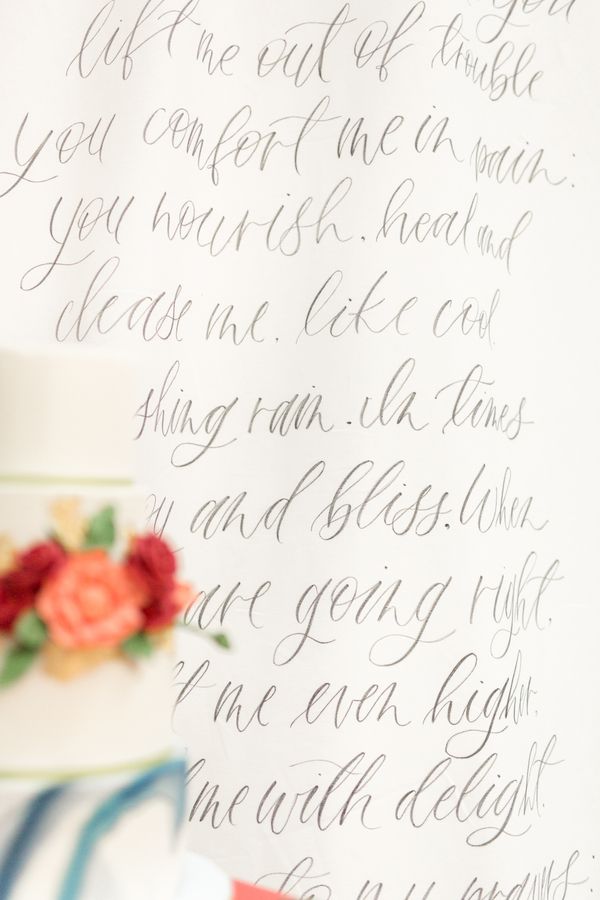 you
lift me out of trouble
you comfort me in pain:
you nourish, heal and
clease me, like cool
shing rain. In times
and bliss, When
are going right,
me even higher,
me with delight,
to my